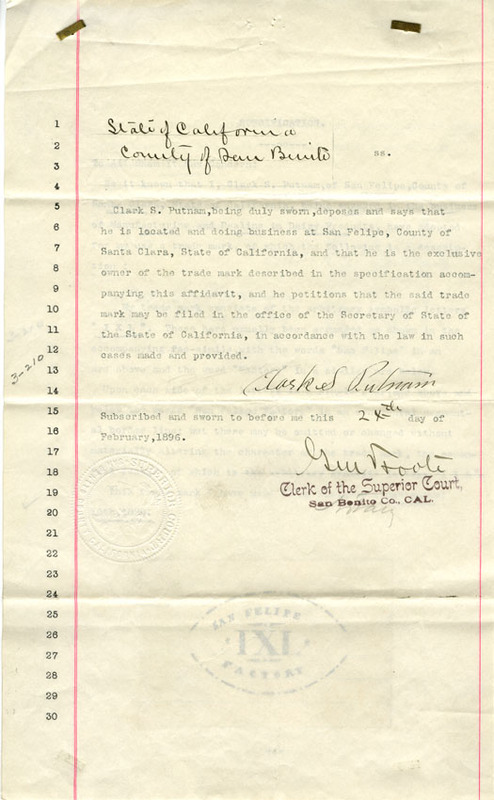 State of California
County of San Benito
ss.
Clark S. Putnam,being duly sworn,deposes and says that
he is located and doing business at San Felipe, County of
Santa Clara, State of California, and that he is the exclusive
owner of the trade mark described in the specification accom-
panying this affidavit, and he petitions that the said trade
mark may be filed in the office of the Secretary of State of
the State of California, in accordance with the law in such
cases made and provided.
3-210
Clark S Putnam
Subscribed and sworn to before me this day of
February,1896.
Clerk of the Superior Court,
San Benito Co., CAL.
SAN FELIPE
IXL
FACTORY
1
2
3
4
5
6
7
8
9
10
11
12
13
14
15
16
17
18
19
20
21
22
23
24
25
26
27
28
29
30